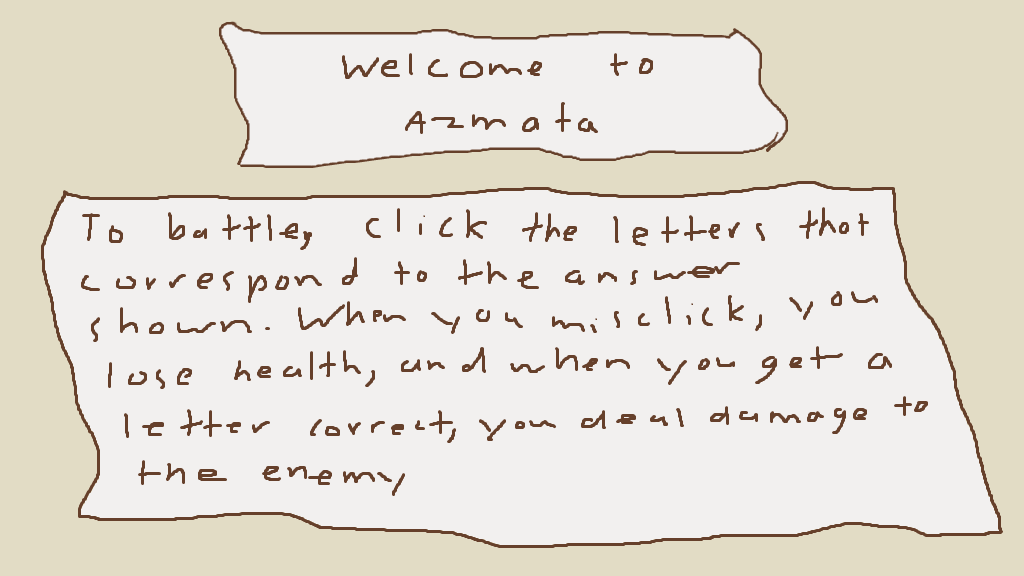 Welcome to
Azmata
To battle, click the letters that
correspond to the answer
shown. When you misclick, you
lose health, and when you get a
letter correct, you deal damage to
the enemy